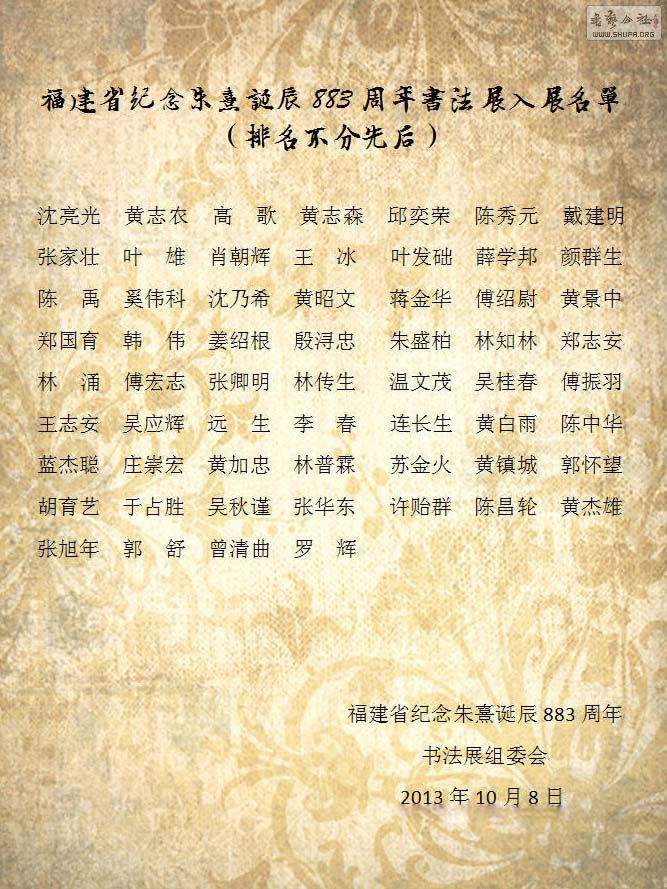 书艺公社
WWW.SHUFA.ORG
福建省纪念朱熹誕辰883周年書法展入展名單
（排名不分先后）
沈亮光 黄志农 高 歌 黄志森 邱奕荣 陈秀元 戴建明
张家壮 叶 雄 肖朝辉 王 冰 叶发础 薛学邦 颜群生
陈 禹 奚伟科 沈乃希 黄昭文 蒋金华 傅绍尉 黄景中
郑国育 韩 伟 姜绍根 殷浔忠 朱盛柏 林知林 郑志安
林 涌 傅宏志 张卿明 林传生 温文茂 吴桂春 傅振羽
王志安 吴应辉 远 生 李 春 连长生 黄白雨 陈中华
蓝杰聪 庄崇宏 黄加忠 林普霖 苏金火 黄镇城 郭怀望
胡育艺 于占胜 吴秋谨 张华东 许贻群 陈昌轮 黄杰雄
张旭年 郭 舒 曾清曲 罗 辉
福建省纪念朱熹诞辰883周年
书法展组委会
2013年10月8日